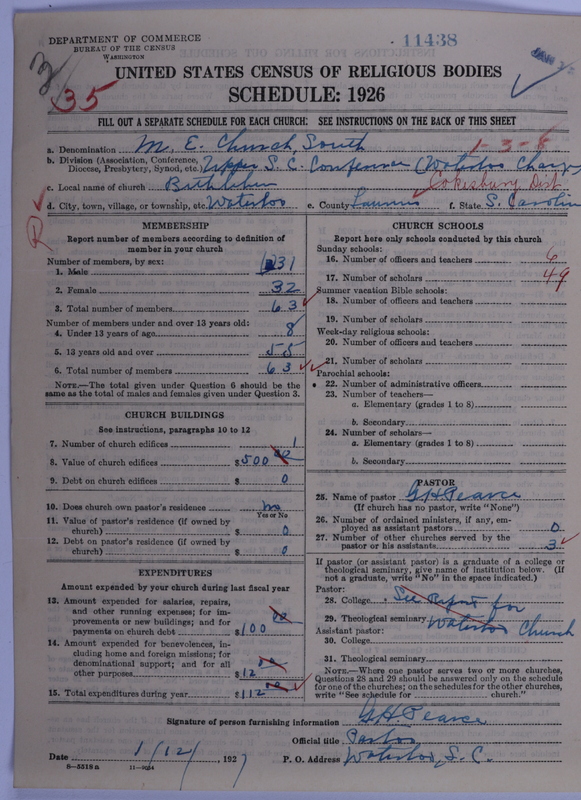 DEPARTMENT OF COMMERCE
BUREAU OF THE CENSUS
WASHINGTON
11438
35
UNITED STATES CENSUS OF RELIGIOUS BODIES
SCHEDULE: 1926
FILL OUT A SEPARATE SCHEDULE FOR EACH CHURCH: SEE INSTRUCTIONS ON THE BACK OF THIS SHEET
a. Denomination M. E. Church, South 1-3-8
b. Division (Association, Conference, Diocese, Presbytery, Synod, etc.) Upper S. C. Conference (Waterloo Charge
Cokesbury Dist.
c. Local name of church Bethlehem
d. City, town, village, or township, etc. Waterloo e. County Laurens f. State S. Carolina
R
MEMBERSHIP
Report number of members according to definition of member in your church
Number of members, by sex:
1. Male 31
2. Female 32
3. Total number of members 63
Number of members under and over 13 years old:
4. Under 13 years of age 8
5. 13 years old and over 55
6. Total number of members 63
NOTE.—The total given under Question 6 should be the same as the total of males and females given under Question 3.
CHURCH BUILDINGS
See instructions, paragraphs 10 to 12
7. Number of church edifices 1
8. Value of church edifices $500 00
9. Debt on church edifices $ 0
10. Does church own pastor's residence no
Yes or No
11. Value of pastor's residence (if owned by church) $ 0
12. Debt on pastor's residence (if owned by church) $ 0
EXPENDITURES
Amount expended by your church during last fiscal year
13. Amount expended for salaries, repairs, and other running expenses; for improvements or new buildings; and for payments on church debt $100 00
14. Amount expended for benevolences, including home and foreign missions; for denominational support; and for all other purposes $12 00
15. Total expenditures during year $112 00
CHURCH SCHOOLS
Report here only schools conducted by this church
Sunday schools:
16. Number of officers and teachers 6
17. Number of scholars 49
Summer vacation Bible schools:
18. Number of officers and teachers
19. Number of scholars
Week-day religious schools:
20. Number of officers and teachers
21. Number of scholars
Parochial schools:
22. Number of administrative officers
23. Number of teachers—
a. Elementary (grades 1 to 8)
b. Secondary
24. Number of scholars—
a. Elementary (grades 1 to 8)
b. Secondary
PASTOR
25. Name of pastor G H Pearce
(If church has no pastor, write "None")
26. Number of ordained ministers, if any, employed as assistant pastors 0
27. Number of other churches served by the pastor or his assistants 3
If pastor (or assistant pastor) is a graduate of a college or theological seminary, give name of institution below. (If not a graduate, write "No" in the space indicated.)
Pastor:
28. College See Report for
29. Theological seminary Waterloo Church
Assistant pastor:
30. College
31. Theological seminary
NOTE.—Where one pastor serves two or more churches, Questions 28 and 29 should be answered only on the schedule for one of the churches; on the schedules for the other churches, write "See schedule for ............ church."
Signature of person furnishing information G. H. Pearce
Official title Pastor
Date 1/12/, 1927 P. O. Address Waterloo, S. C.
8-5519 a